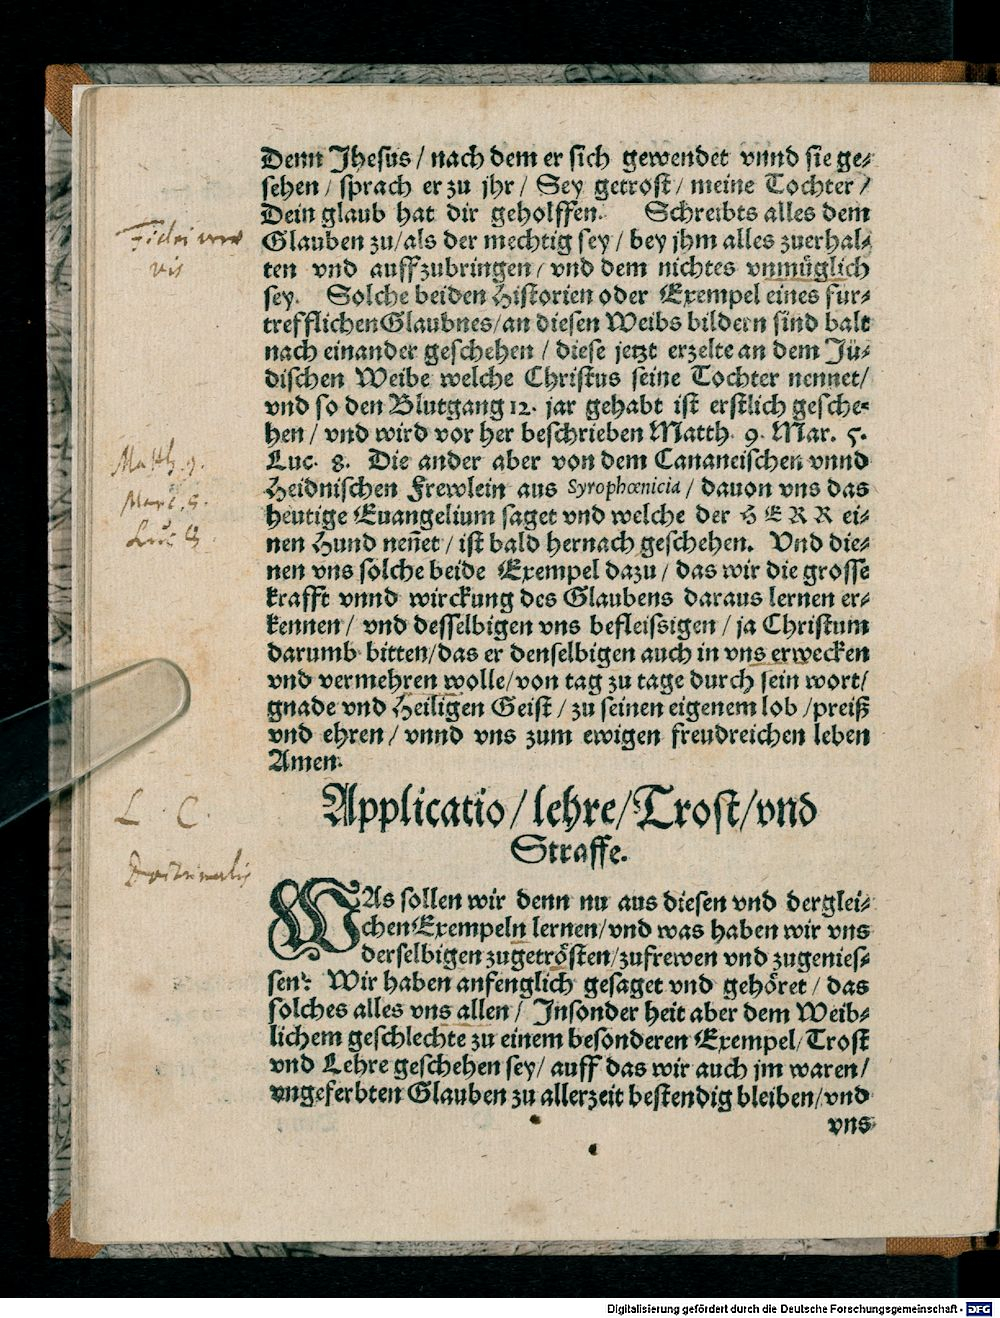 Denn Jhesus / nach dem er sich gewendet vnnd sie ge⸗
sehen / sprach er zu jhr / Sey getrost / meine Tochter /
Dein glaub hat dir geholffen. Schreibts alles dem
Glauben zu / als der mechtig sey / bey jhm alles zuerhal⸗
ten vnd auffzubringen / vnd dem nichtes vnmüglich
sey. Solche beiden Historien oder Exempel eines fur⸗
trefflichen Glaubnes / an diesen Weibs bildern sind balt
nach einander geschehen / diese jetzt erzelte an dem Jü⸗
dischen Weibe welche Christus seine Tochter nennet /
vnd so den Blutgang 12. jar gehabt ist erstlich gesche⸗
hen / vnd wird vor her beschrieben Matth. 9. Mar. 5.
Luc. 8. Die ander aber von dem Cananeischen vnnd
Heidnischen Frewlein aus Syrophœnicia / dauon vns das
heutige Euangelium saget vnd welche der HERR ei⸗
nen Hund nen̄et / ist bald hernach geschehen. Vnd die⸗
nen vns solche beide Exempel dazu / das wir die grosse
krafft vnnd wirckung des Glaubens daraus lernen er⸗
kennen / vnd desselbigen vns befleissigen / ja Christum
darumb bitten / das er denselbigen auch in vns erwecken
vnd vermehren wolle / von tag zu tage durch sein wort /
gnade vnd Heiligen Geist / zu seinen eigenem lob / preiß
vnd ehren / vnnd vns zum ewigen freudreichen leben
Amen.
Applicatio / lehre / Trost / vnd
Straffe.
WAs sollen wir denn nu aus diesen vnd derglei⸗
chen Exempeln lernen / vnd was haben wir vns
derselbigen zugetrösten / zufrewen vnd zugenies⸗
sen? Wir haben anfenglich gesaget vnd gehöret / das
solches alles vns allen / Jnsonder heit aber dem Weib⸗
lichem geschlechte zu einem besonderen Exempel / Trost
vnd Lehre geschehen sey / auff das wir auch jm waren /
vngeferbten Glauben zu allerzeit bestendig bleiben / vnd
vns
Fidei
vis
Matth. 9.
Marc. 5.
Luc 8.
L. C.
Digitalisierung gefördert durch die Deutsche Forschungsgemeinschaft - DFG